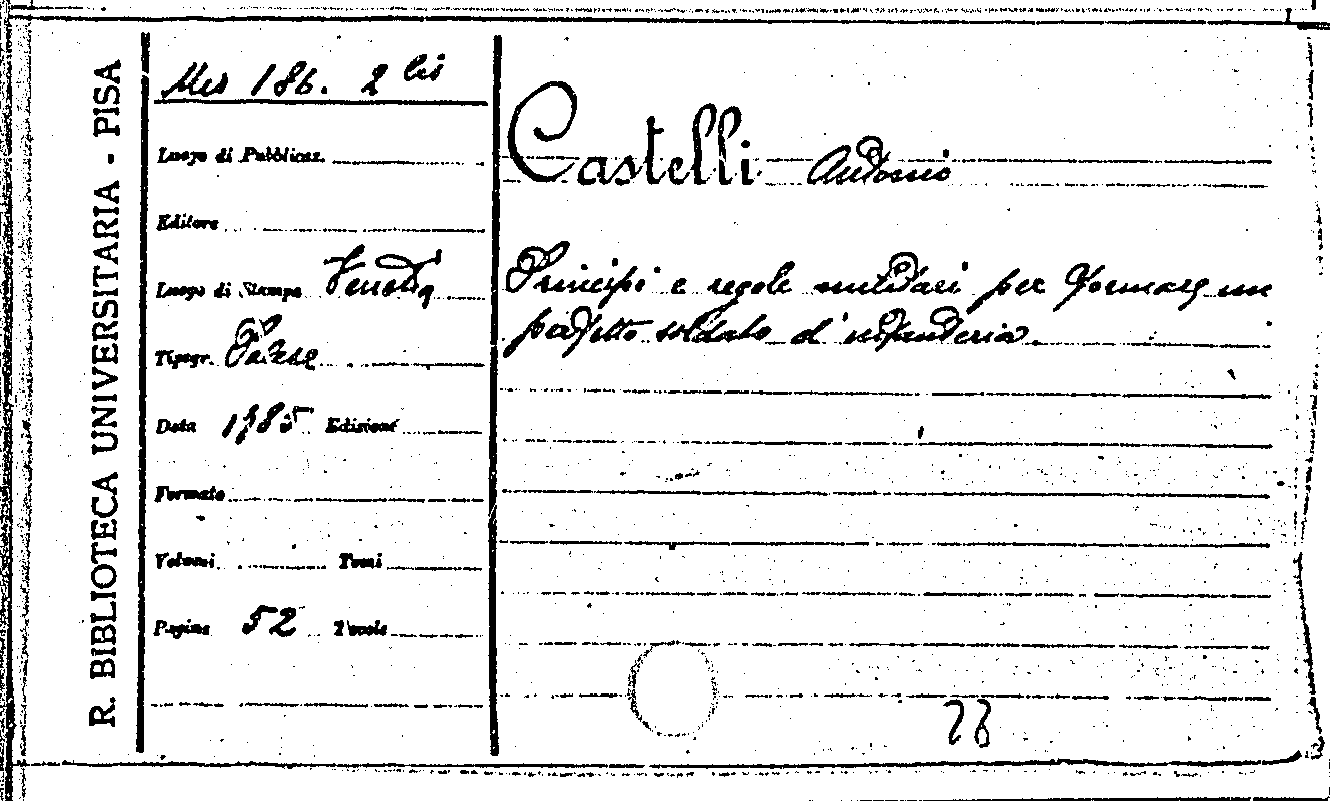 R. BIBLIOTECA UNIVERSITARIA - PISA
Mes 186. 2 bis
Luogo di Pubblicaz.
Editore
Luogo di Stampa Venezia
Tipogr. Palese
Data 1785 Edizione
Formato
Volumi Tomi
Pagine 52 Tavole
Castelli Antonio
Principi e regole militari per formare un
perfetto soldato d'infanteria.